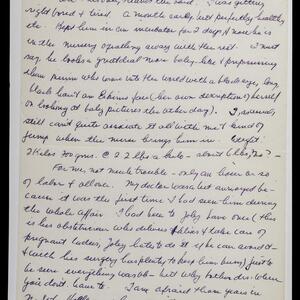 I was getting
right bored & tired. A month early, but perfectly healthy
etc. Kept him in an incubator for 2 days & now he is
in the nursery squalling away with the rest. I must
say he looks a great deal more baby-like & prepossessing
than
who came into the world with a black eye, long
black hair & an Eskimo face (her own description of herself
on looking at baby pictures the other day). I, however,
still can't quite associate it all with me & kind of
jump when the nurse brings him in. Weight:
2 Kilos
@ 2.2 lbs a kilo - about
For me, not much trouble - only an hour or so
of labor & all over. My doctor was
annoyed be-
cause it was the first time I had seen him during
the whole affair. I had been to Joly
once (this
is his obstetrician who delivers babies & takes care of
pregnant ladies, Joly hates to do it & he can avoid it -
& with his surgery
to keep him busy) just to
be sure everything was
- but why bother
when
you don't have to. I am afraid those years in